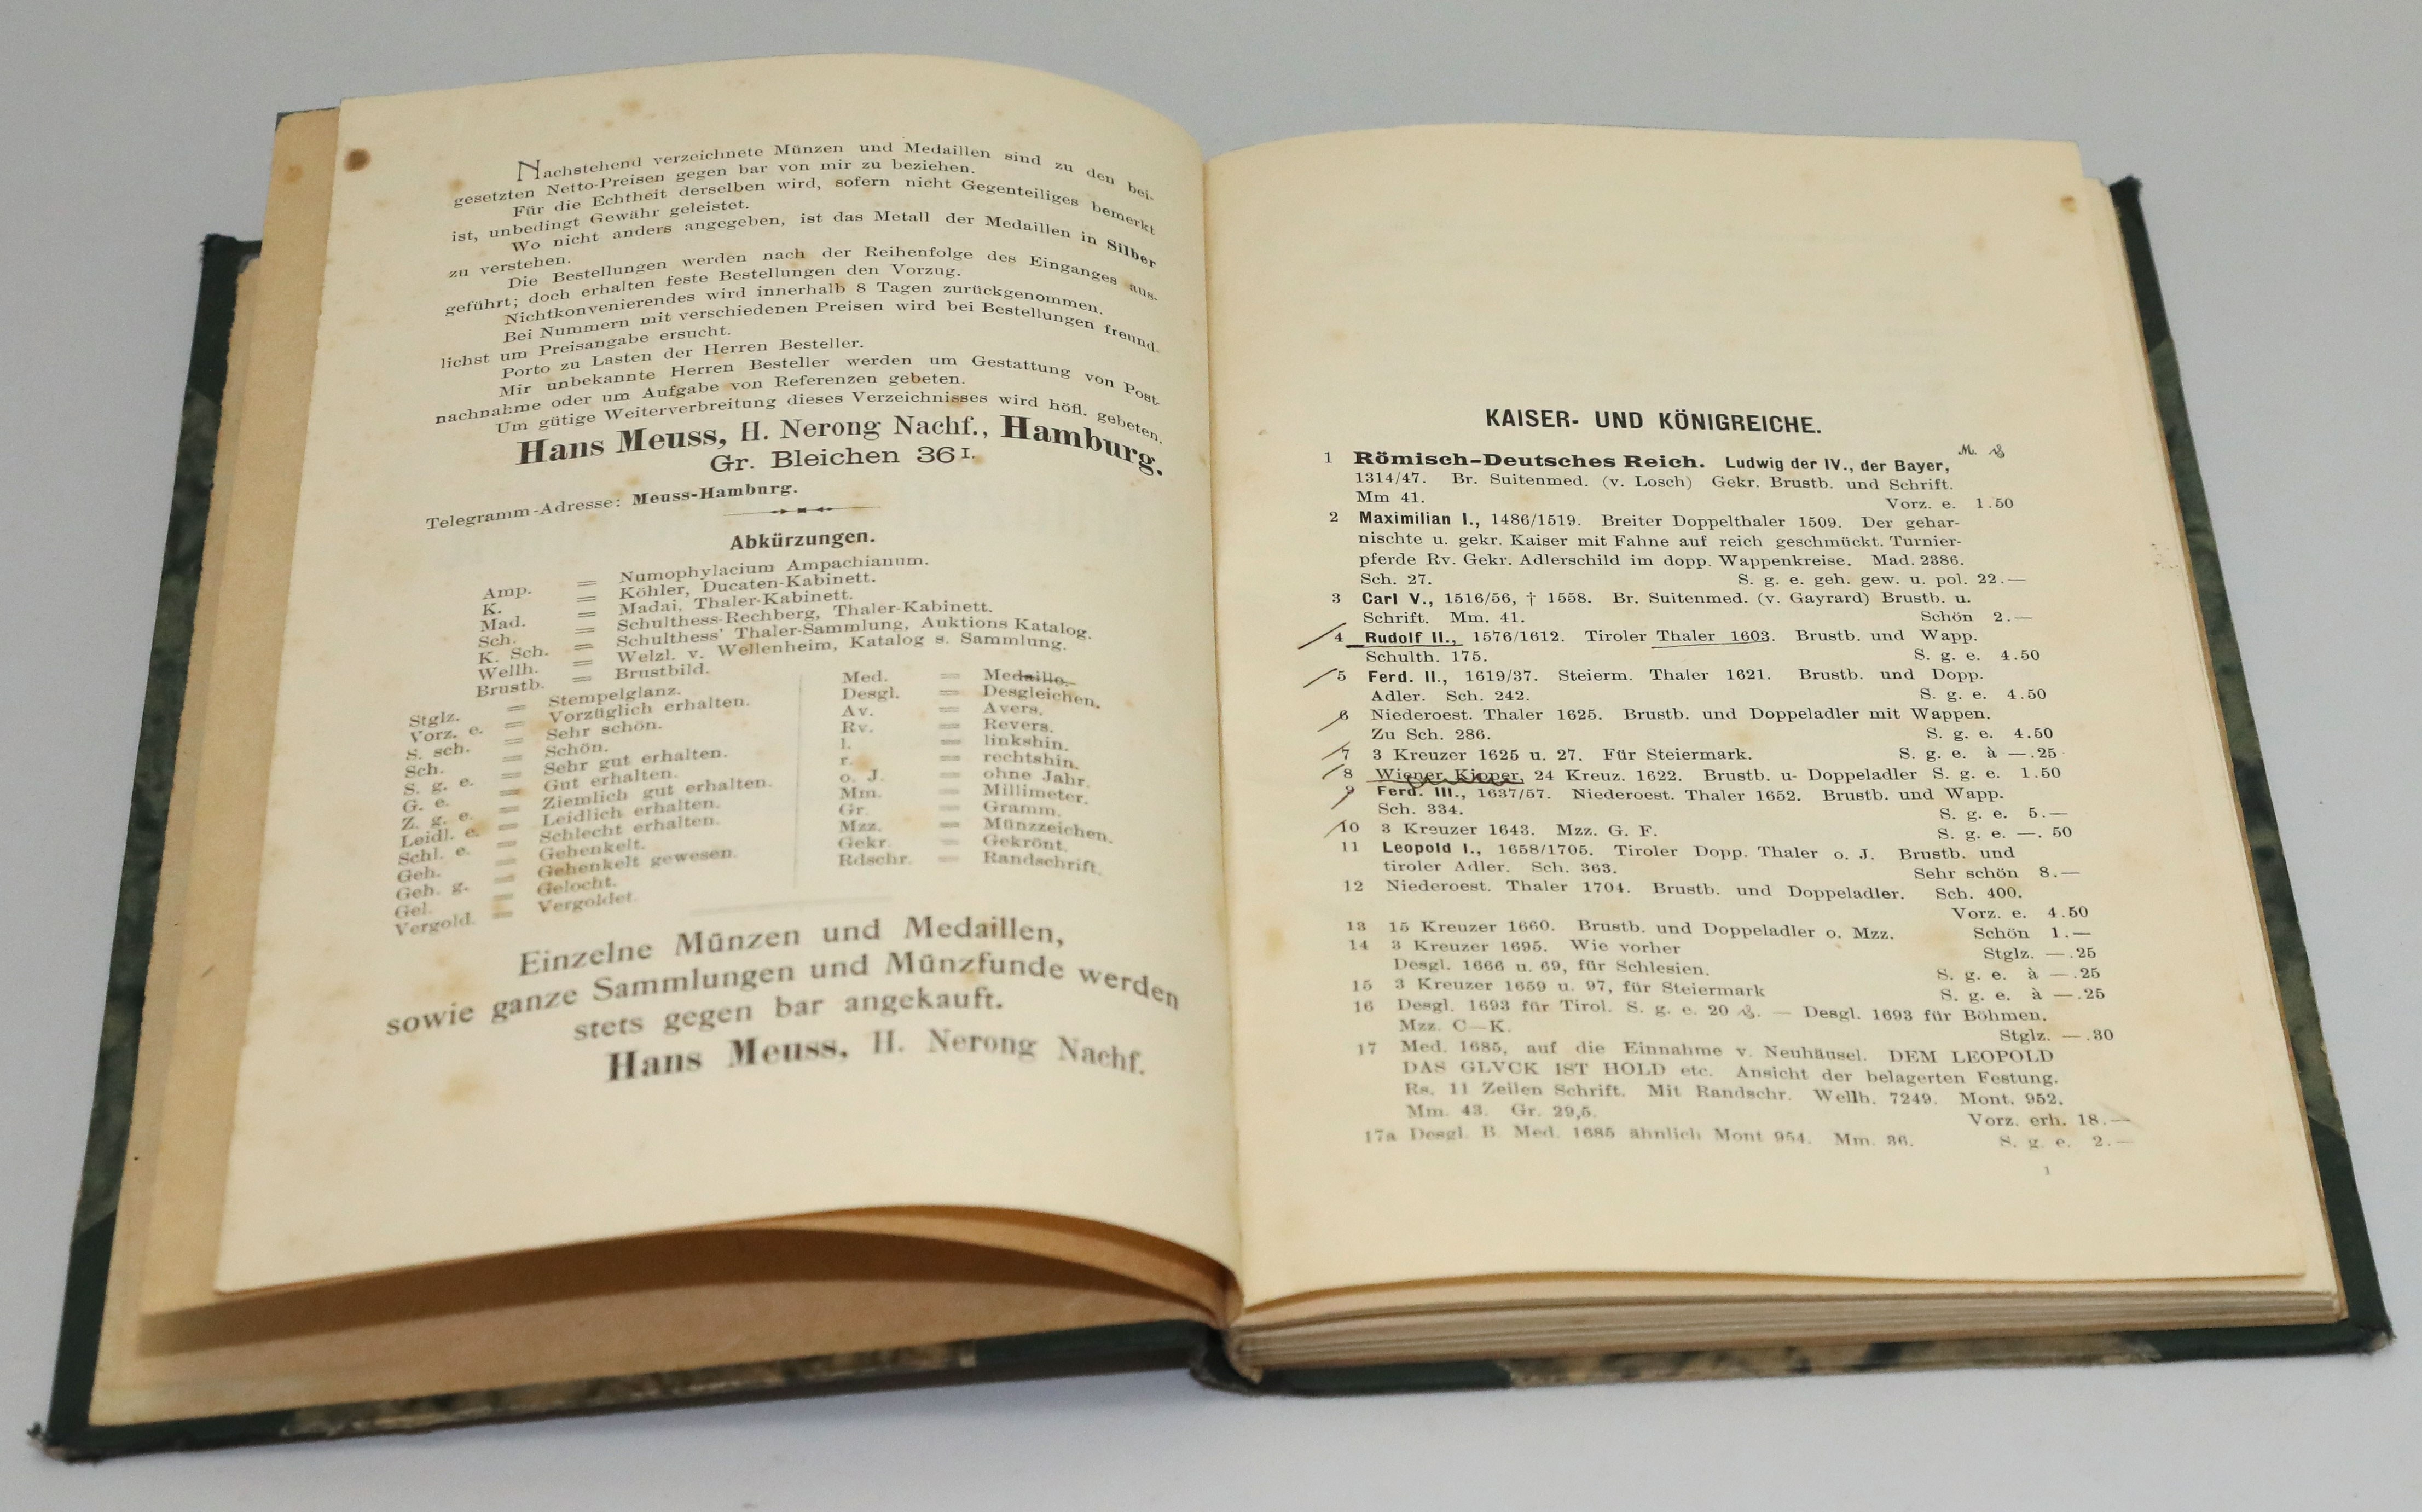 Nachstehend verzeichnete Münzen und Medaillen sind zu den bei-
gesetzten Netto-Preisen gegen bar von mir zu beziehen.
Für die Echtheit derselben wird, sofern nicht Gegenteiliges bemerkt
ist, unbedingt Gewähr geleistet.
Wo nicht anders angegeben, ist das Metall der Medaillen in Silber
zu verstehen.
Die Bestellungen werden nach der Reihenfolge des Einganges aus-
geführt; doch erhalten feste Bestellungen den Vorzug.
Nichtkonvenierendes wird innerhalb 8 Tagen zurückgenommen.
Bei Nummern mit verschiedenen Preisen wird bei Bestellungen freund-
lichst um Preisangabe ersucht.
Porto zu Lasten der Herren Besteller.
Mir unbekannte Herren Besteller werden um Gestattung von Post-
nachnahme oder um Aufgabe von Referenzen gebeten.
Um gütige Weiterverbreitung dieses Verzeichnisses wird höfl. gebeten.
Hans Meuss, H. Nerong Nachf., Hamburg.
Gr. Bleichen 36 I.
Telegramm-Adresse: Meuss-Hamburg.
Abkürzungen.
Amp. = Numophylacium Ampachianum.
K. = Köhler, Ducaten-Kabinett.
Mad. = Madai, Thaler-Kabinett.
Sch. = Schulthess-Rechberg, Thaler-Kabinett.
K. Sch. = Schulthess' Thaler-Sammlung, Auktions Katalog.
Wellh. = Welzl. v. Wellenheim, Katalog s. Sammlung.
Brustb. = Brustbild.
Stglz. = Stempelglanz.
Vorz. e. = Vorzüglich erhalten.
S. sch. = Sehr schön.
Sch. = Schön.
S. g. e. = Sehr gut erhalten.
G. e. = Gut erhalten.
Z. g. e. = Ziemlich gut erhalten.
Leidl. e. = Leidlich erhalten.
Schl. e. = Schlecht erhalten.
Geh. = Gehenkelt.
Geh. g. = Gehenkelt gewesen.
Gel. = Gelocht.
Vergold. = Vergoldet.
Med. = Medaille.
Desgl. = Desgleichen.
Av. = Avers.
Rv. = Revers.
l. = linkshin.
r. = rechtshin.
o. J. = ohne Jahr.
Mm. = Millimeter.
Gr. = Gramm.
Mzz. = Münzzeichen.
Gekr. = Gekrönt.
Rdschr. = Randschrift.
Einzelne Münzen und Medaillen,
sowie ganze Sammlungen und Münzfunde werden
stets gegen bar angekauft.
Hans Meuss, H. Nerong Nachf.
KAISER- UND KÖNIGREICHE.
M. ₰
1 Römisch-Deutsches Reich. Ludwig der IV., der Bayer,
1314/47. Br. Suitenmed. (v. Losch) Gekr. Brustb. und Schrift.
Mm 41. Vorz. e. 1.50
2 Maximilian I., 1486/1519. Breiter Doppelthaler 1509. Der gehar-
nischte u. gekr. Kaiser mit Fahne auf reich geschmückt. Turnier-
pferde Rv. Gekr. Adlerschild im dopp. Wappenkreise. Mad. 2386.
Sch. 27. S. g. e. geh. gew. u. pol. 22.—
3 Carl V., 1516/56, † 1558. Br. Suitenmed. (v. Gayrard) Brustb. u.
Schrift. Mm. 41. Schön 2.—
4 Rudolf II., 1576/1612. Tiroler Thaler 1603. Brustb. und Wapp.
Schulth. 175. S. g. e. 4.50
5 Ferd. II., 1619/37. Steierm. Thaler 1621. Brustb. und Dopp.
Adler. Sch. 242. S. g. e. 4.50
6 Niederoest. Thaler 1625. Brustb. und Doppeladler mit Wappen.
Zu Sch. 286. S. g. e. 4.50
7 3 Kreuzer 1625 u. 27. Für Steiermark. S. g. e. à —.25
8 Wiener Kipper, 24 Kreuz. 1622. Brustb. u- Doppeladler S. g. e. 1.50
9 Ferd. III., 1637/57. Niederoest. Thaler 1652. Brustb. und Wapp.
Sch. 334. S. g. e. 5.—
10 3 Kreuzer 1643. Mzz. G. F. S. g. e. —. 50
11 Leopold I., 1658/1705. Tiroler Dopp. Thaler o. J. Brustb. und
tiroler Adler. Sch. 363. Sehr schön 8.—
12 Niederoest. Thaler 1704. Brustb. und Doppeladler. Sch. 400.
Vorz. e. 4.50
13 15 Kreuzer 1660. Brustb. und Doppeladler o. Mzz. Schön 1.—
14 3 Kreuzer 1695. Wie vorher Stglz. —.25
Desgl. 1666 u. 69, für Schlesien. S. g. e. à —.25
15 3 Kreuzer 1659 u. 97, für Steiermark S. g. e. à —.25
16 Desgl. 1693 für Tirol. S. g. e. 20 ₰. — Desgl. 1693 für Böhmen.
Mzz. C—K. Stglz. —.30
17 Med. 1685, auf die Einnahme v. Neuhäusel. DEM LEOPOLD
DAS GLVCK IST HOLD etc. Ansicht der belagerten Festung.
Rs. 11 Zeilen Schrift. Mit Randschr. Wellh. 7249. Mont. 952.
Mm. 43. Gr. 29,5. Vorz. erh. 18.—
17a Desgl. B. Med. 1685 ähnlich Mont 954. Mm. 36. S. g. e. 2.—
1